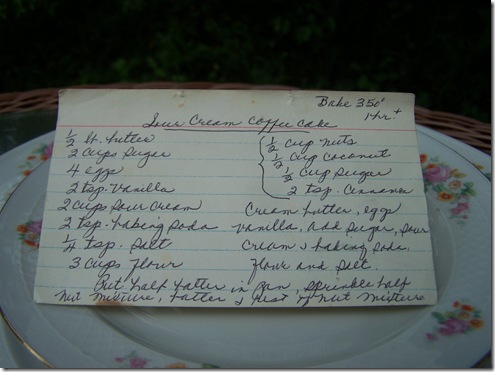 Bake 350°
1 hr. +
Sour Cream Coffee Cake
½ lb. butter
2 cups sugar
4 eggs
2 tsp. vanilla
2 cups sour cream
2 tsp. baking soda
¼ tsp. salt
3 cups flour
½ cup nuts
½ cup coconut
½ cup sugar
2 tsp. cinnamon
Cream butter, eggs
vanilla, add sugar, sour
cream & baking soda,
flour and salt.
Put half batter in pan, sprinkle half
nut mixture, batter & rest of nut mixture